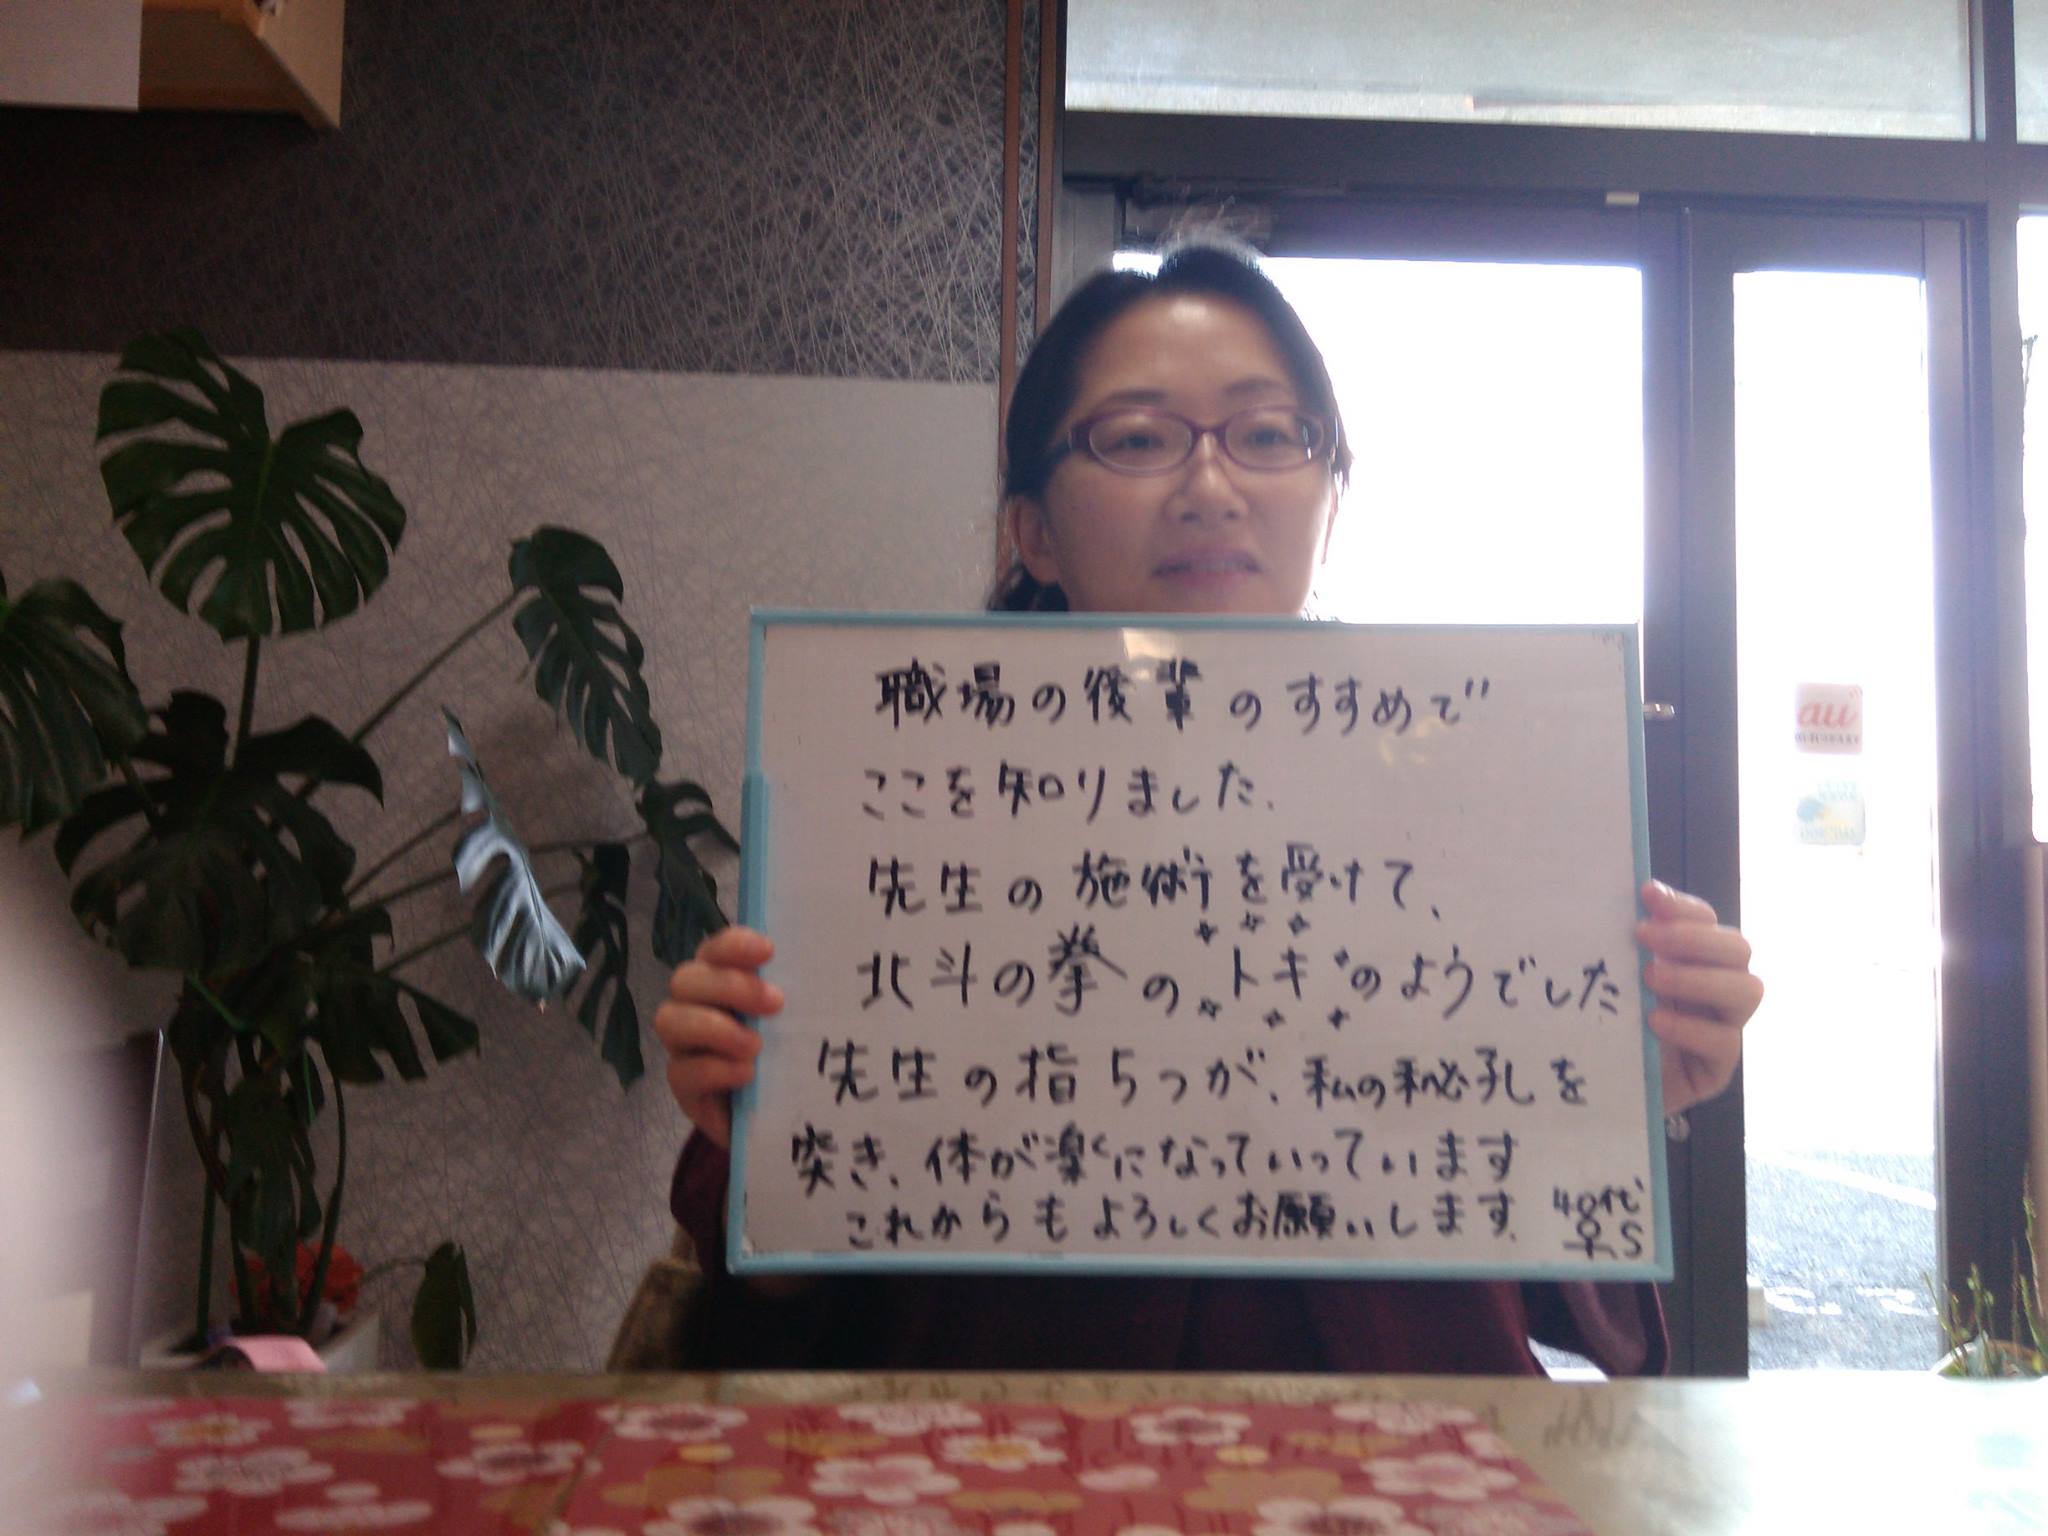 職場の後輩のすすめで
ここを知りました.
先生の施術を受けて、
北斗の拳の"トキ"のようでした
先生の指らつが、私の秘孔を
突き、体が楽くになっていっています
これからもよろしくお願いします.
40代
♀.S
au